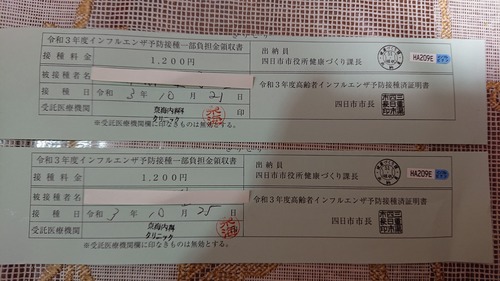 令和3年度インフルエンザ予防接種一部負担金領収書
接種料金 1,200円
被接種者名
接種日 令和 3年 10月 21日
受託医療機関 内科クリニック 印
※受託医療機関欄に印なきものは無効とする。
出納員
四日市市役所健康づくり課長
HA209E
令和3年度高齢者インフルエンザ予防接種済証明書
四日市市長
令和3年度インフルエンザ予防接種一部負担金領収書
接種料金 1,200円
被接種者名
接種日 令和 3年 10月 25日
受託医療機関 内科クリニック
※受託医療機関欄に印なきものは無効とする。
出納員
四日市市役所健康づくり課長
HA209E
令和3年度高齢者インフルエンザ予防接種済証明書
四日市市長